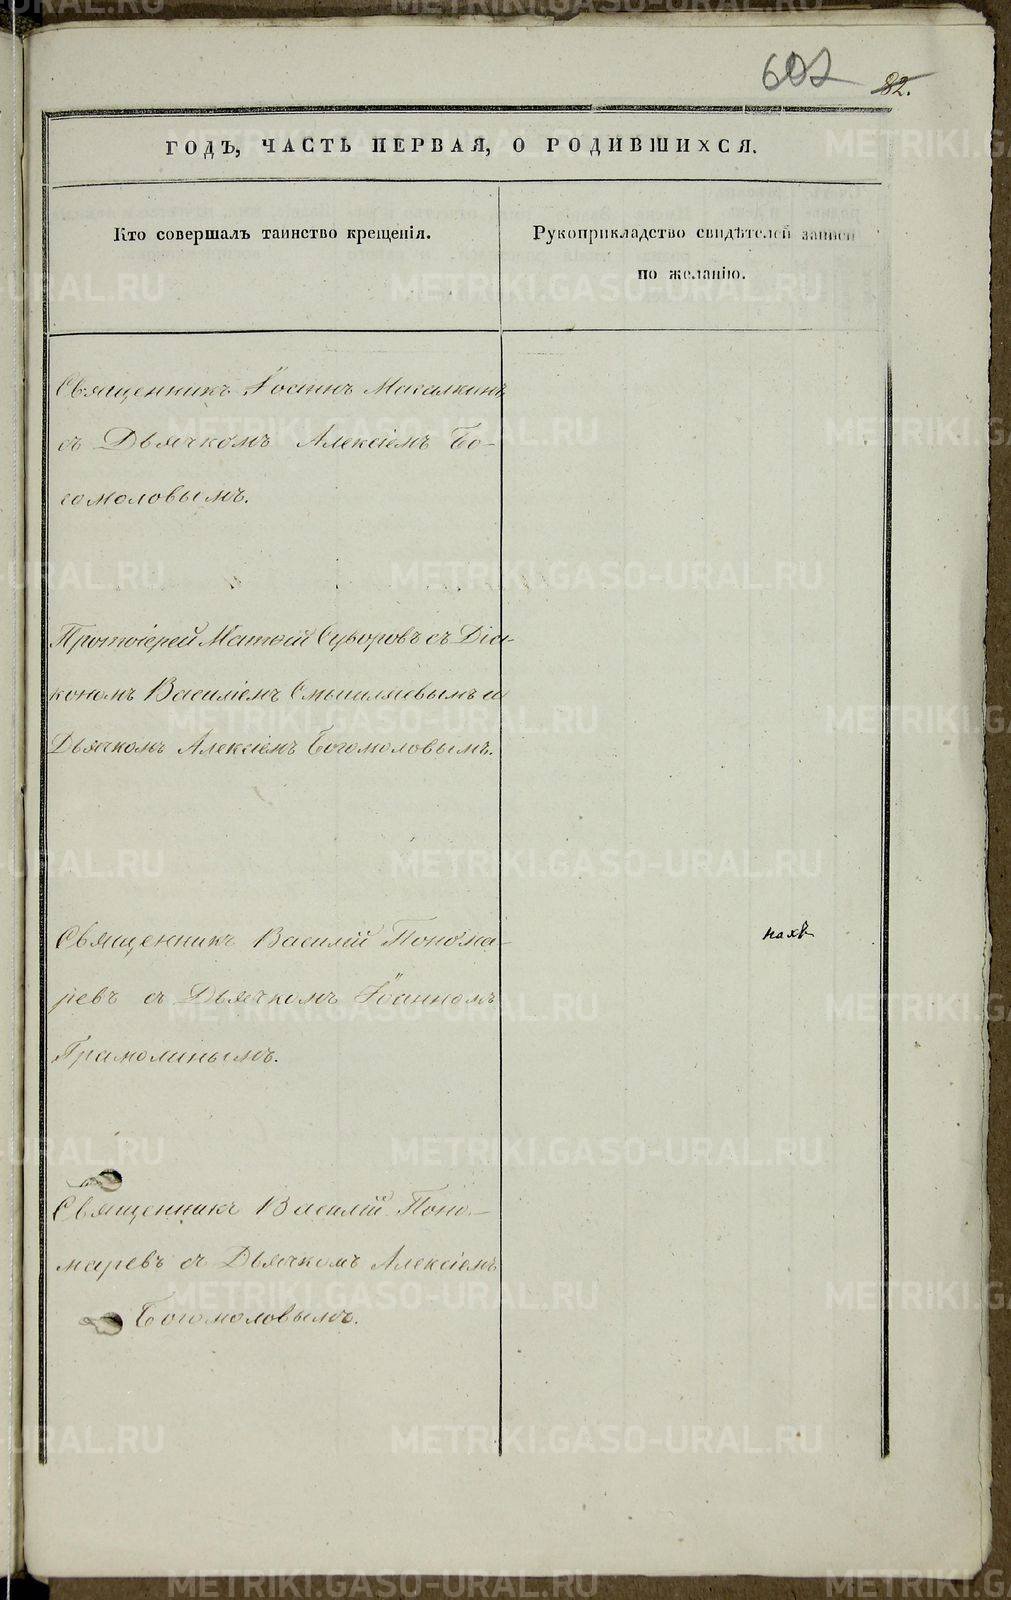 602 82.
ГОДЪ, ЧАСТЬ ПЕРВАЯ, О РОДИВШИХСЯ.
Кто совершалъ таинство крещенія.
Рукоприкладство свидѣтелей записи
по желанію.
Священникъ Іоаннъ Макалкинъ
съ Дьячкомъ Алексіемъ Бо-
гомоловымъ.
Протоіерей Матѳей Суворовъ съ Діа-
кономъ Василіемъ Смышляевымъ и
Дьячкомъ Алексіемъ Богомоловымъ.
Священникъ Василій Понома-
ревъ съ Дьячкомъ Іоанномъ
Грамолинымъ.
Священникъ Василій Поно-
маревъ съ Дьячкомъ Алексіемъ
Богомоловымъ.
METRIKI.GASO-URAL.RU